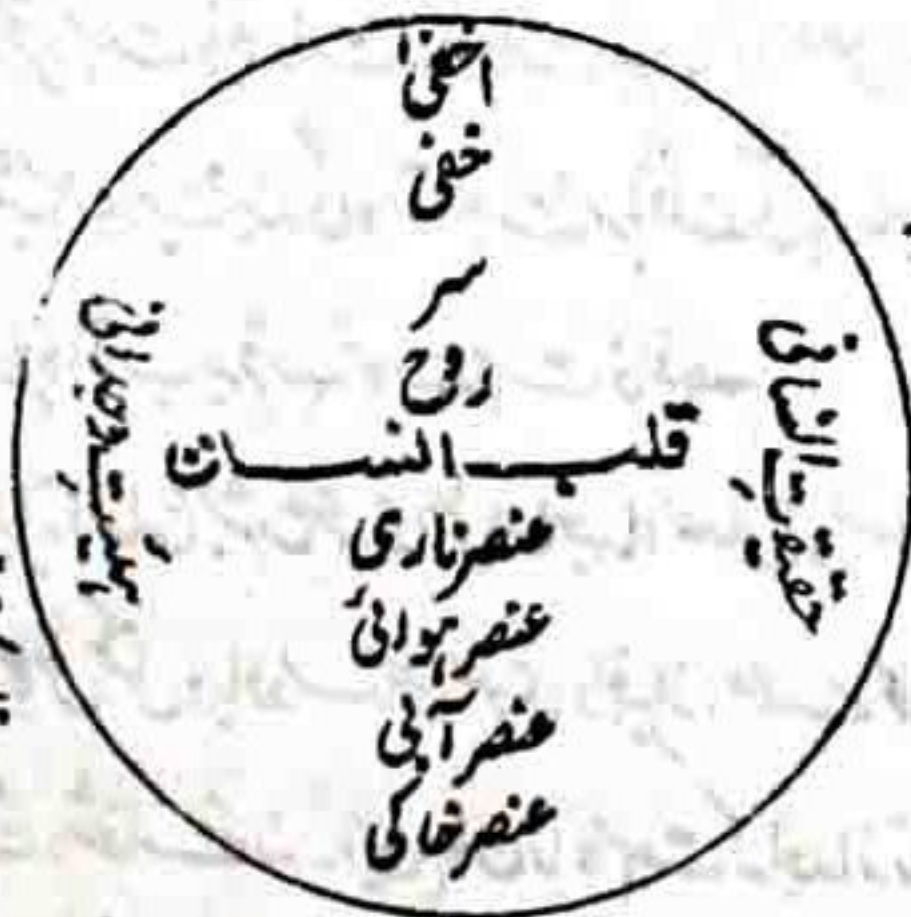 اخفیٰ
خفی
سر
روح
قلب انسان
عنصر ناری
عنصر ہوائی
عنصر آبی
عنصر خاکی
حقیقتِ انسانی
ہیئتِ وحدانی